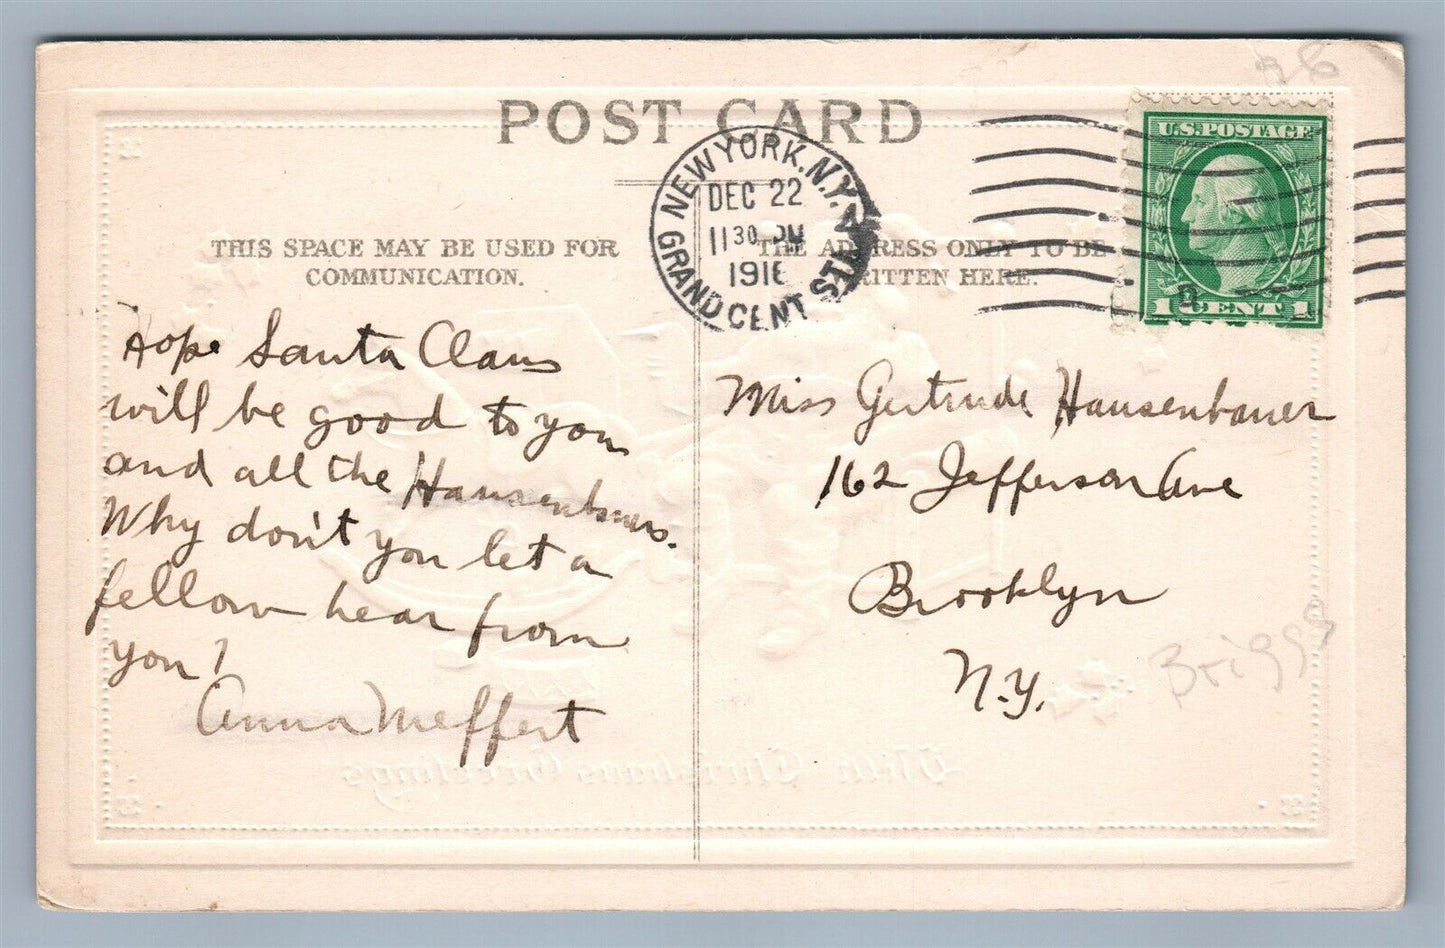 POST CARD
NEW YORK, N.Y.
DEC 22
11 30 PM
1916
GRAND CENT. STA.
U.S. POSTAGE
1 CENT 1
THIS SPACE MAY BE USED FOR
COMMUNICATION.
THE ADDRESS ONLY TO BE
WRITTEN HERE.
Hope Santa Claus
will be good to you
and all the Hausenbauers.
Why don't you let a
fellow hear from
you?
Anna Meffert
Miss Gertrude Hausenbauer
162 Jefferson Ave
Brooklyn
N.Y.
Briggs
With Christmas Greetings